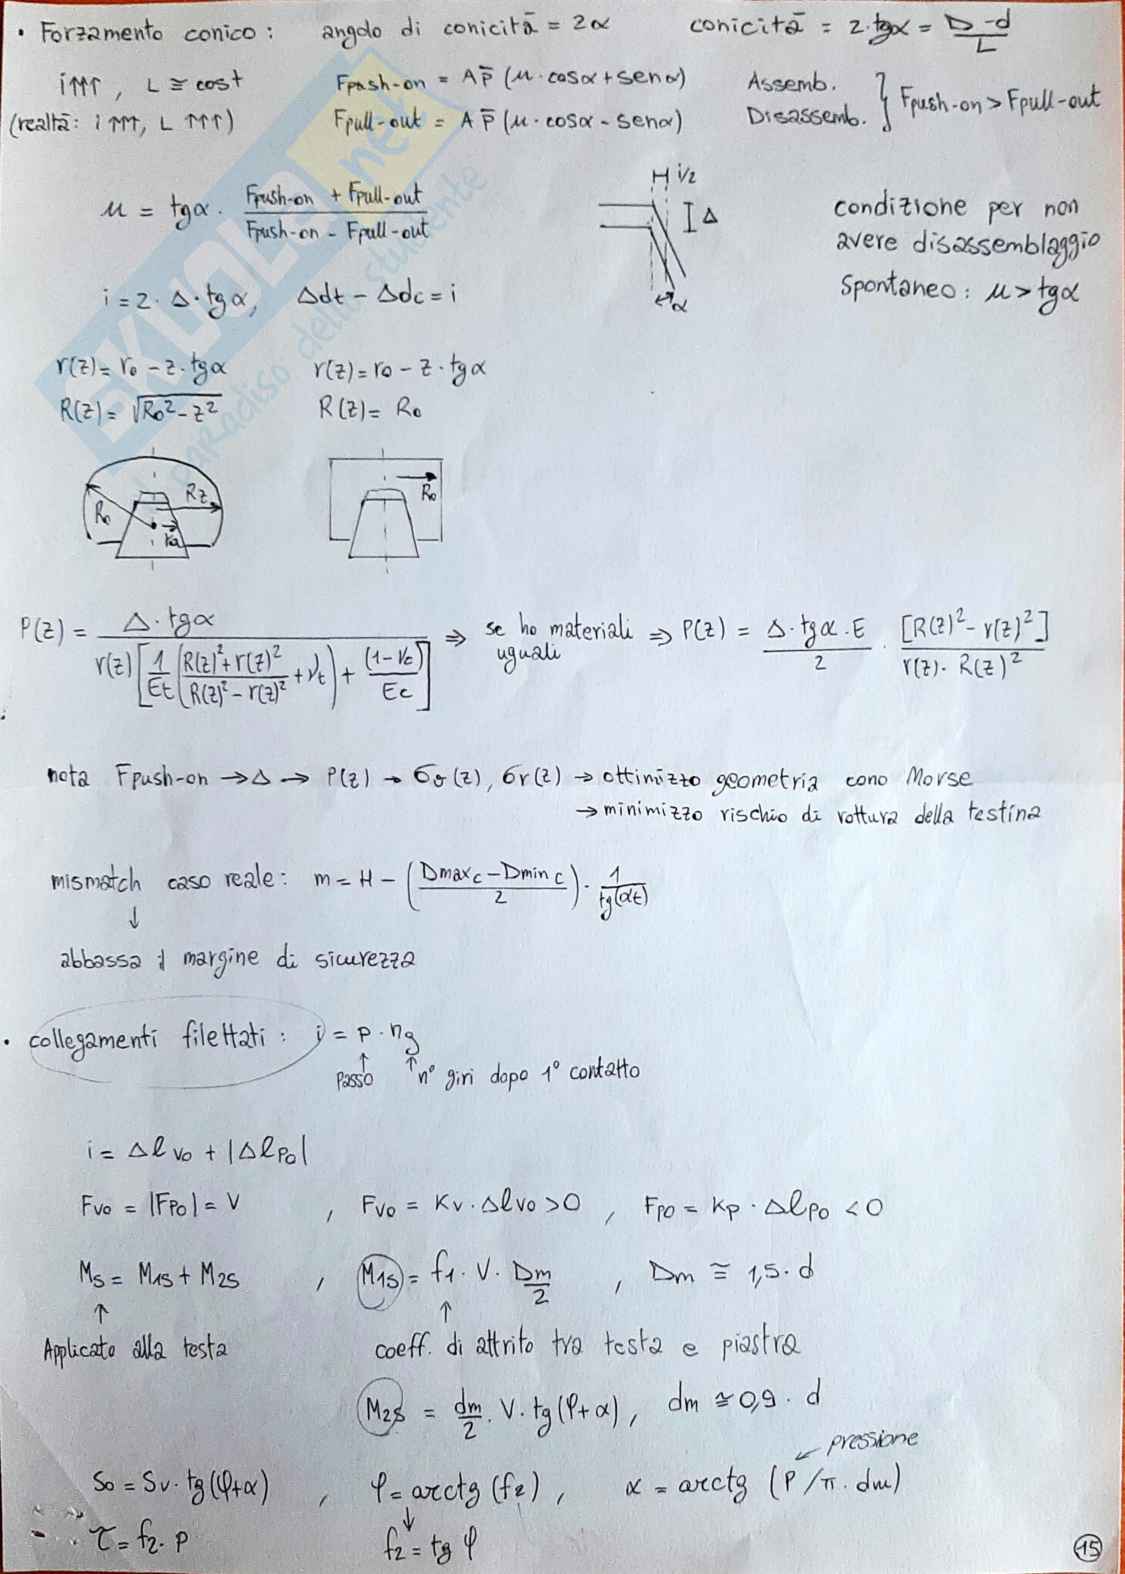 • Forzamento conico: angolo di conicità = 2α conicità = 2·tgα = D-d/L
i↑↑↑, L ≅ cost Fpush-on = A p̄ (μ·cosα + senα) Assemb.
(realtà: i↑↑↑, L↑↑↑) Fpull-out = A p̄ (μ·cosα - senα) Disassemb. } Fpush-on > Fpull-out
μ = tgα · (Fpush-on + Fpull-out)/(Fpush-on - Fpull-out)
i/2
Δ
α
condizione per non
avere disassemblaggio
spontaneo: μ > tgα
i = 2·Δ·tgα, Δdt - Δdc = i
r(z) = r0 - z·tgα r(z) = r0 - z·tgα
R(z) = √(R0² - z²) R(z) = R0
R0 Rz R0
P(z) = Δ·tgα / r(z)[1/Et (R(z)²+r(z)²/R(z)²-r(z)² + νt) + (1-νc)/Ec] ⇒ se ho materiali uguali ⇒ P(z) = Δ·tgα·E/2 · [R(z)² - r(z)²]/r(z)·R(z)²
nota Fpush-on → Δ → P(z) → σθ(z), σr(z) → ottimizzo geometria cono Morse
→ minimizzo rischio di rottura della testina
mismatch caso reale: m = H - (Dmaxc - Dminc/2) · 1/tg(αt)
↓
abbassa il margine di sicurezza
• collegamenti filettati: i = p · ng
↑ passo ↑ n° giri dopo 1° contatto
i = Δlvo + |Δlpo|
Fvo = |Fpo| = V , Fvo = Kv · Δlvo > 0 , Fpo = Kp · Δlpo < 0
Ms = M1s + M2s , M1s = f1 · V · Dm/2 , Dm ≅ 1,5 · d
↑ ↑
Applicato alla testa coeff. di attrito tra testa e piastra
M2s = dm/2 · V · tg(φ+α), dm ≅ 0,9 · d
pressione
So = Sv · tg(φ+α) , φ = arctg(f2), α = arctg (P/π·dm)
↓
τ = f2 · p f2 = tg φ
15
SKUOLA.net
paradiso dello studente